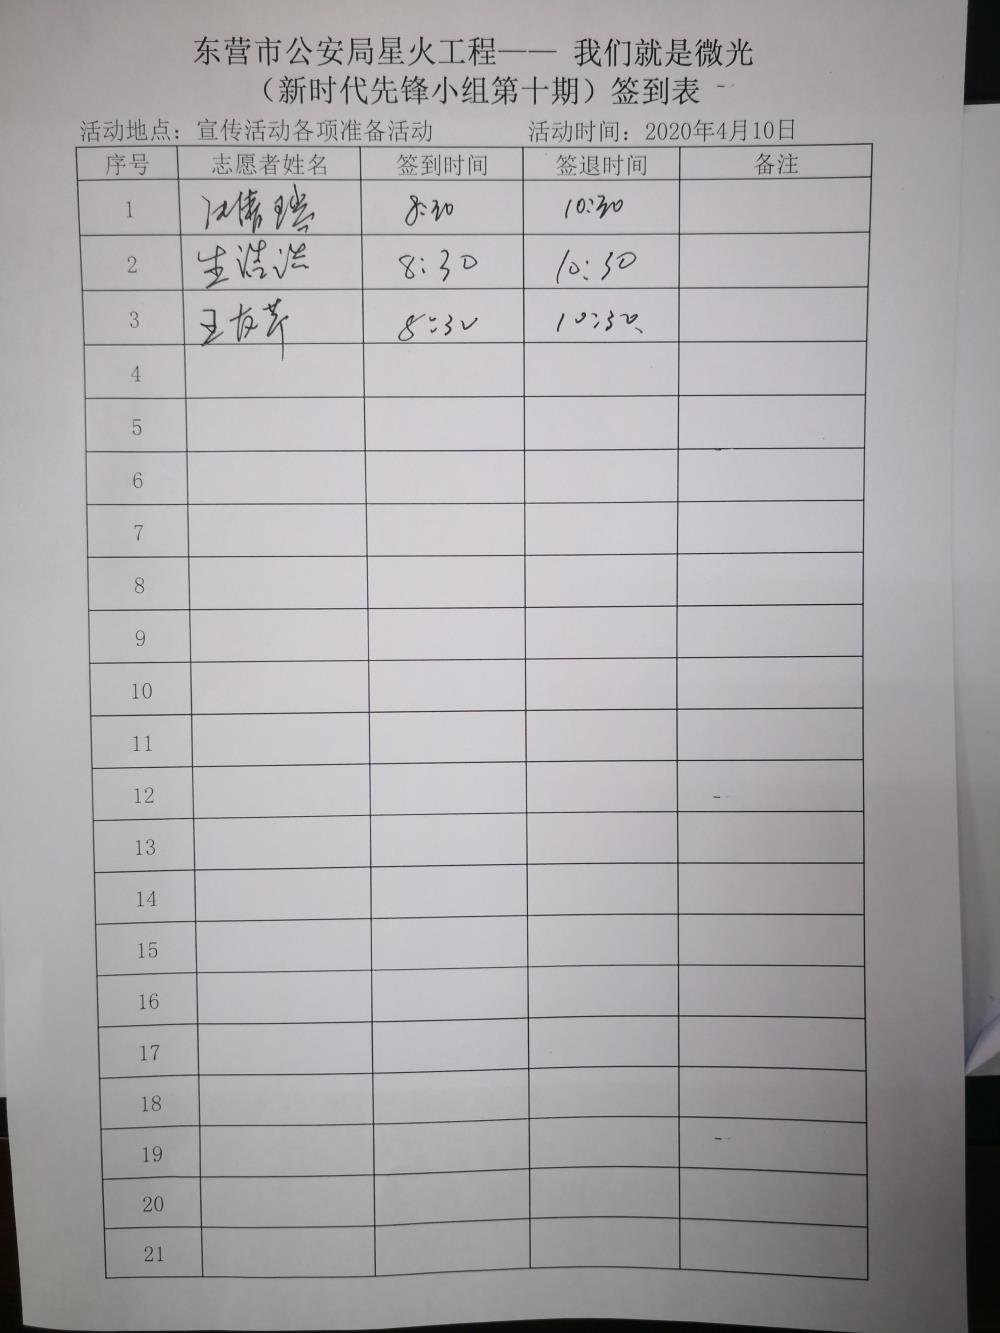 东营市公安局星火工程—— 我们就是微光
（新时代先锋小组第十期）签到表
活动地点：宣传活动各项准备活动 活动时间：2020年4月10日
序号 志愿者姓名 签到时间 签退时间 备注
1 8:30 10:30
2 生浩浩 8:30 10:30
3 王友芹 8:30 10:30
4
5
6
7
8
9
10
11
12
13
14
15
16
17
18
19
20
21